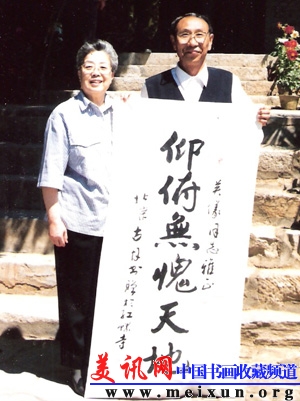 同志雅正
仰俯無愧天地
北京
书赠於红螺寺
美讯网 中国书画收藏频道
www.meixun.org